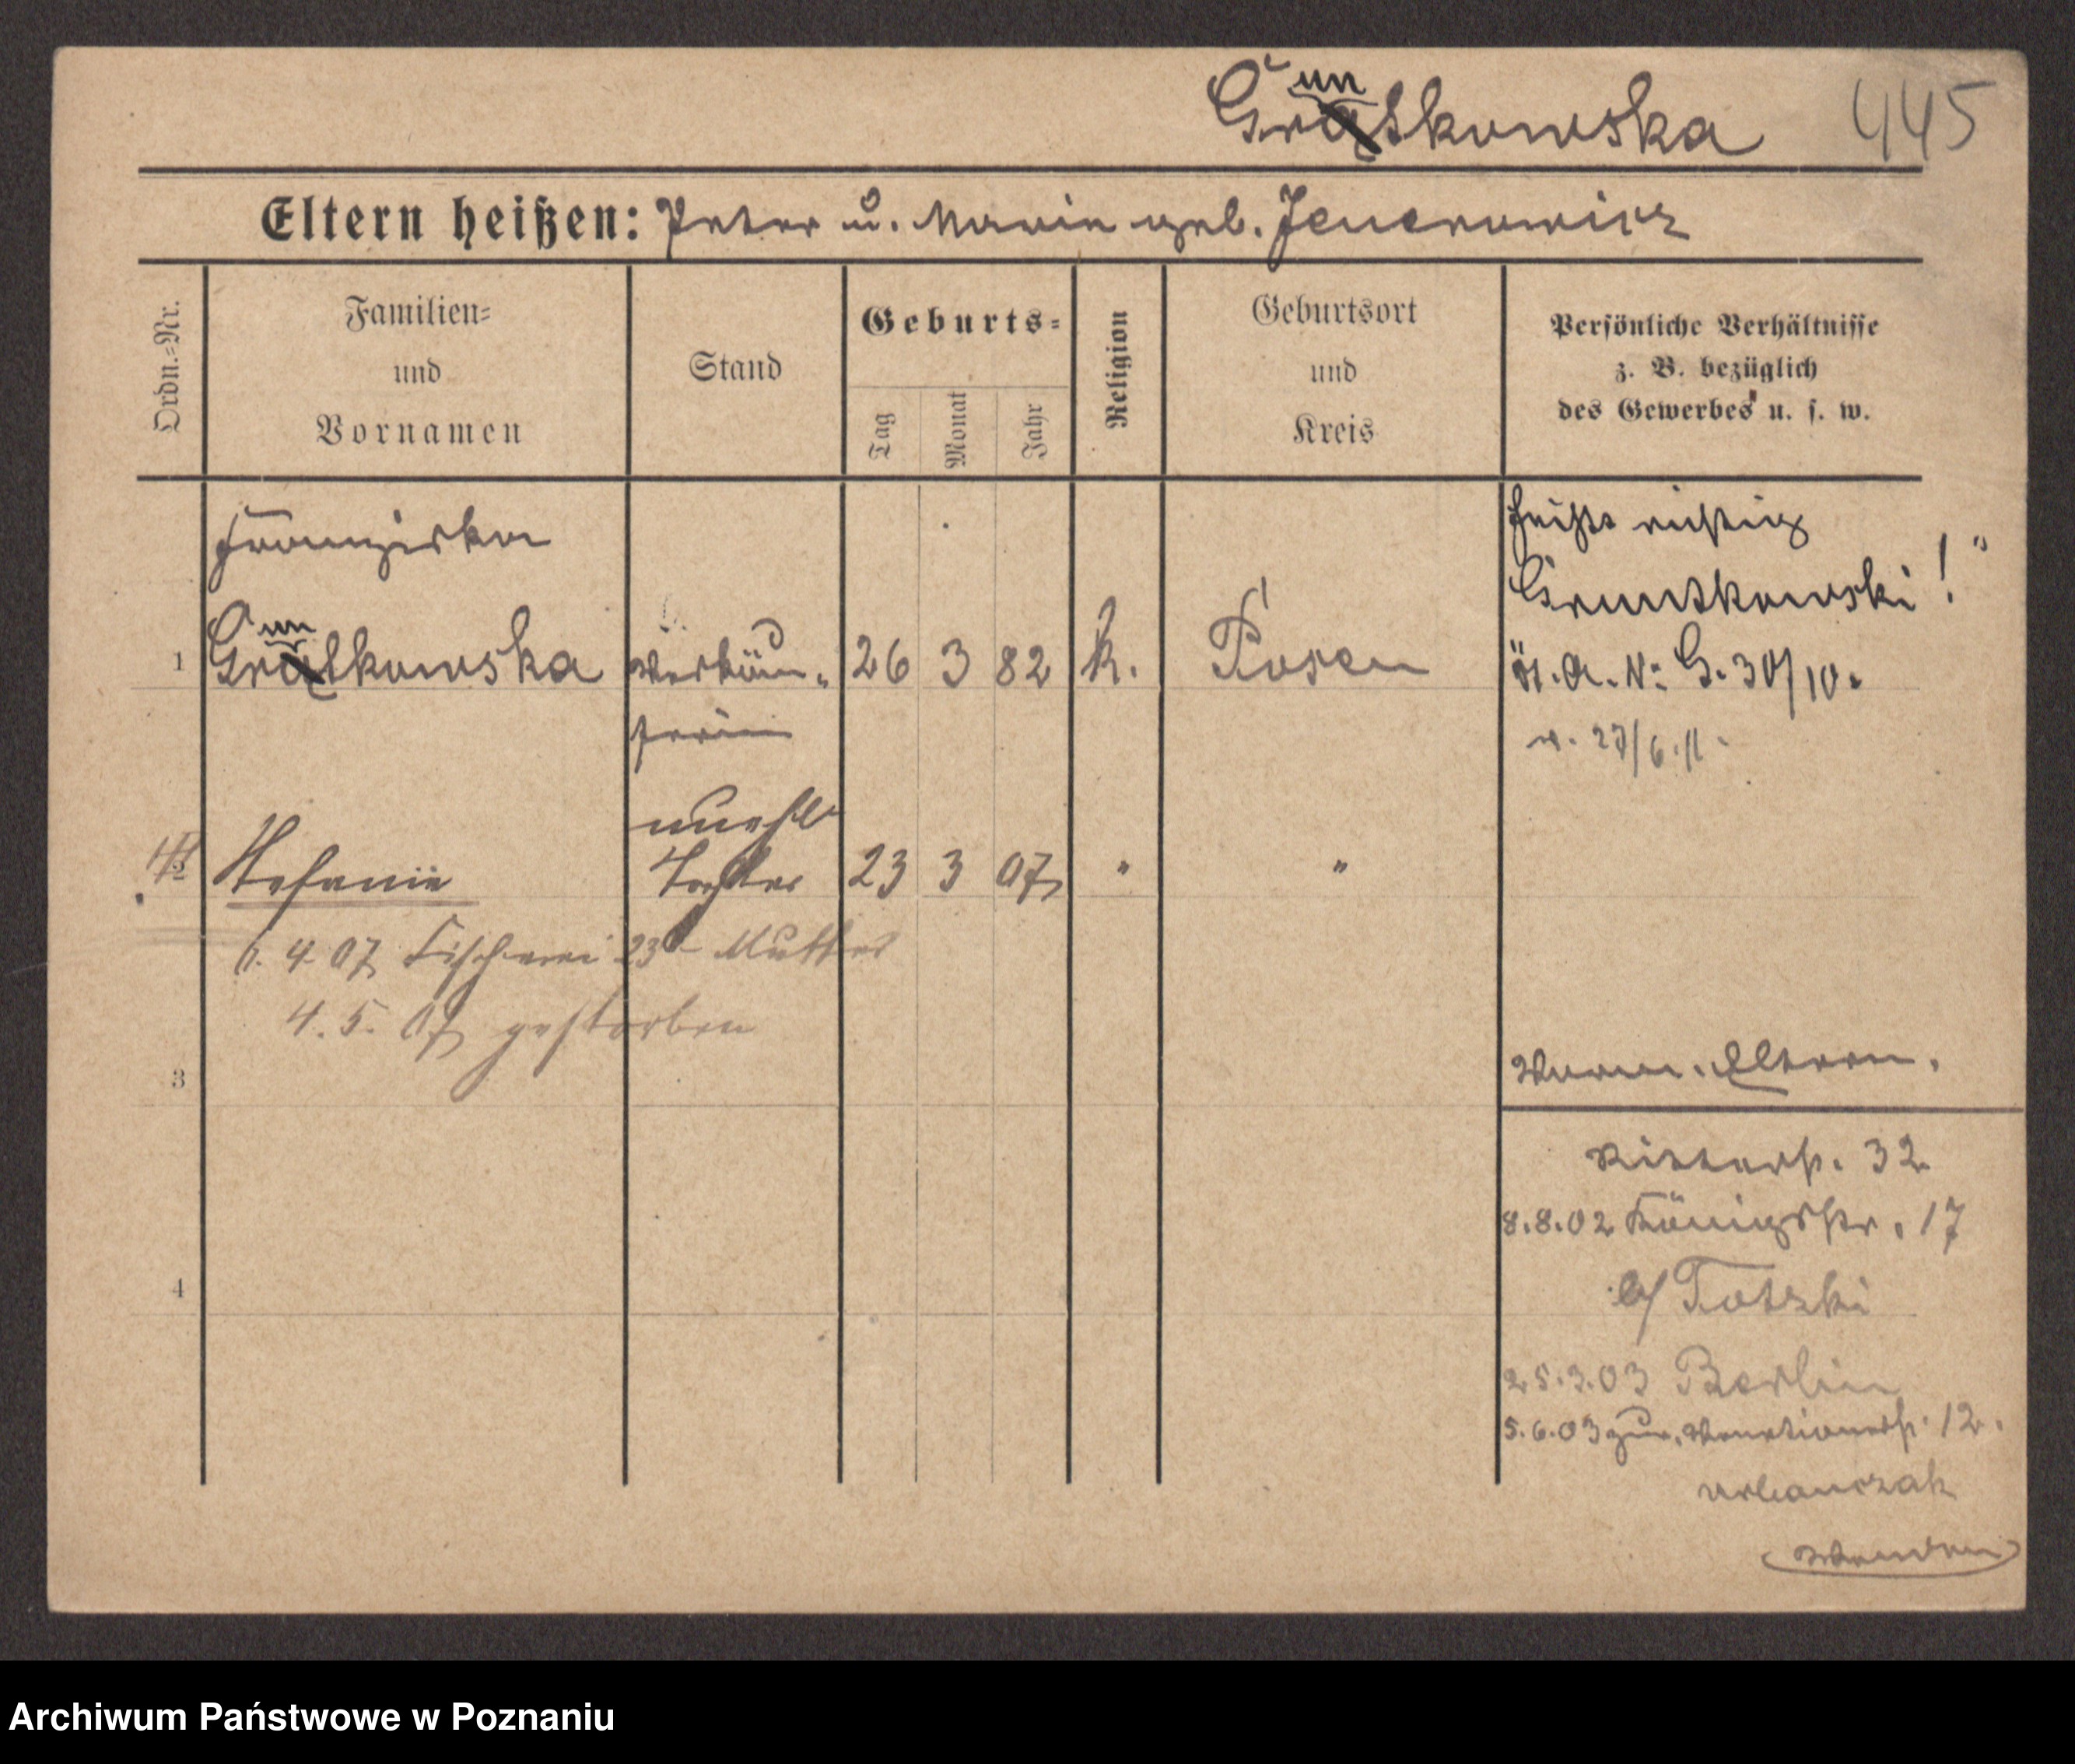 un
Gratkowska
445
Eltern heißen: Peter u. Maria geb. Jeuerowicz
Ordn.-Nr.
Familien-
und
Vornamen
Stand
Geburts-
Tag
Monat
Jahr
Religion
Geburtsort
und
Kreis
Persönliche Verhältnisse
z. B. bezüglich
des Gewerbes u. s. w.
Franziska
un
1 Gratkowska
Verkäu-
ferin
26 3 82 k. Posen
heißt richtig
Gruntkowski!
G. 30/10.
27/6.11.
2 Stefanie
unehl
Tochter
23 3 07 " "
6. 4 07 Fischerei 23 Mutter
4. 5. 07 gestorben
3
Eltern.
Ritterstr. 32
8.8.02 Königstr. 17
b/ Totzki
4
25.3.03 Berlin
5.6.03 zur. 12.
Urbanczak
Wenden
Archiwum Państwowe w Poznaniu